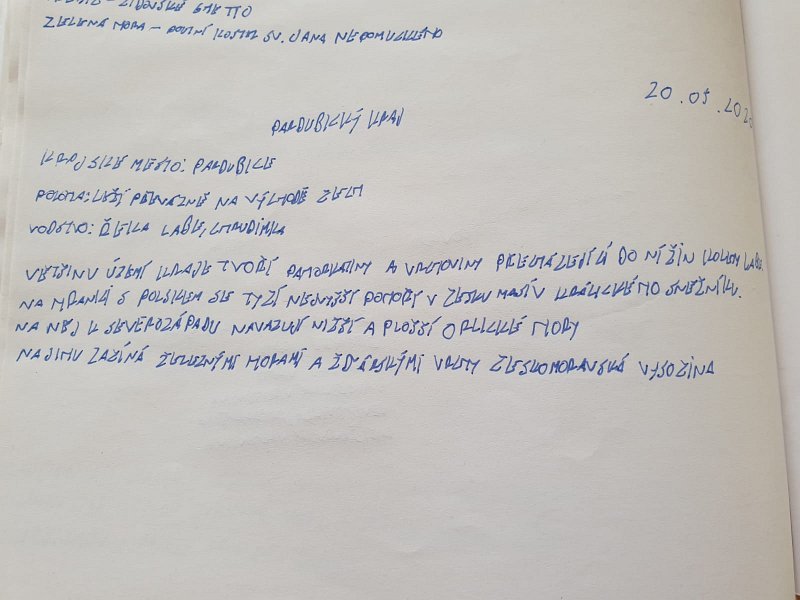 ŽIDOVSKÉ GHETTO
ZELENÁ HORA – POUTNÍ KOSTEL SV. JANA NEPOMUCKÉHO
20.05.202
PARDUBICKÝ KRAJ
KRAJSKÉ MĚSTO: PARDUBICE
POLOHA: LEŽÍ PŘEVÁŽNĚ NA VÝCHODĚ ČECH
VODSTVO: ŘEKA LABE, CHRUDIMKA
VĚTŠINU ÚZEMÍ KRAJE TVOŘÍ PAHORKATINY A VRCHOVINY PŘECHÁZEJÍCÍ DO NÍŽIN KOLEM LABE.
NA HRANICI S POLSKEM SE TYČÍ NEJVYŠŠÍ POHOŘÍ V ČESKU MASÍV KRÁLICKÉHO SNĚŽNÍKU.
NA NĚJ K SEVEROZÁPADU NAVAZUJÍ NIŽŠÍ A PLOŠŠÍ ORLICKÉ HORY
NA JIHU ZAČÍNÁ ŽELEZNÝMI HORAMI A ŽĎÁRSKÝMI VRCHY ČESKOMORAVSKÁ VYSOČINA